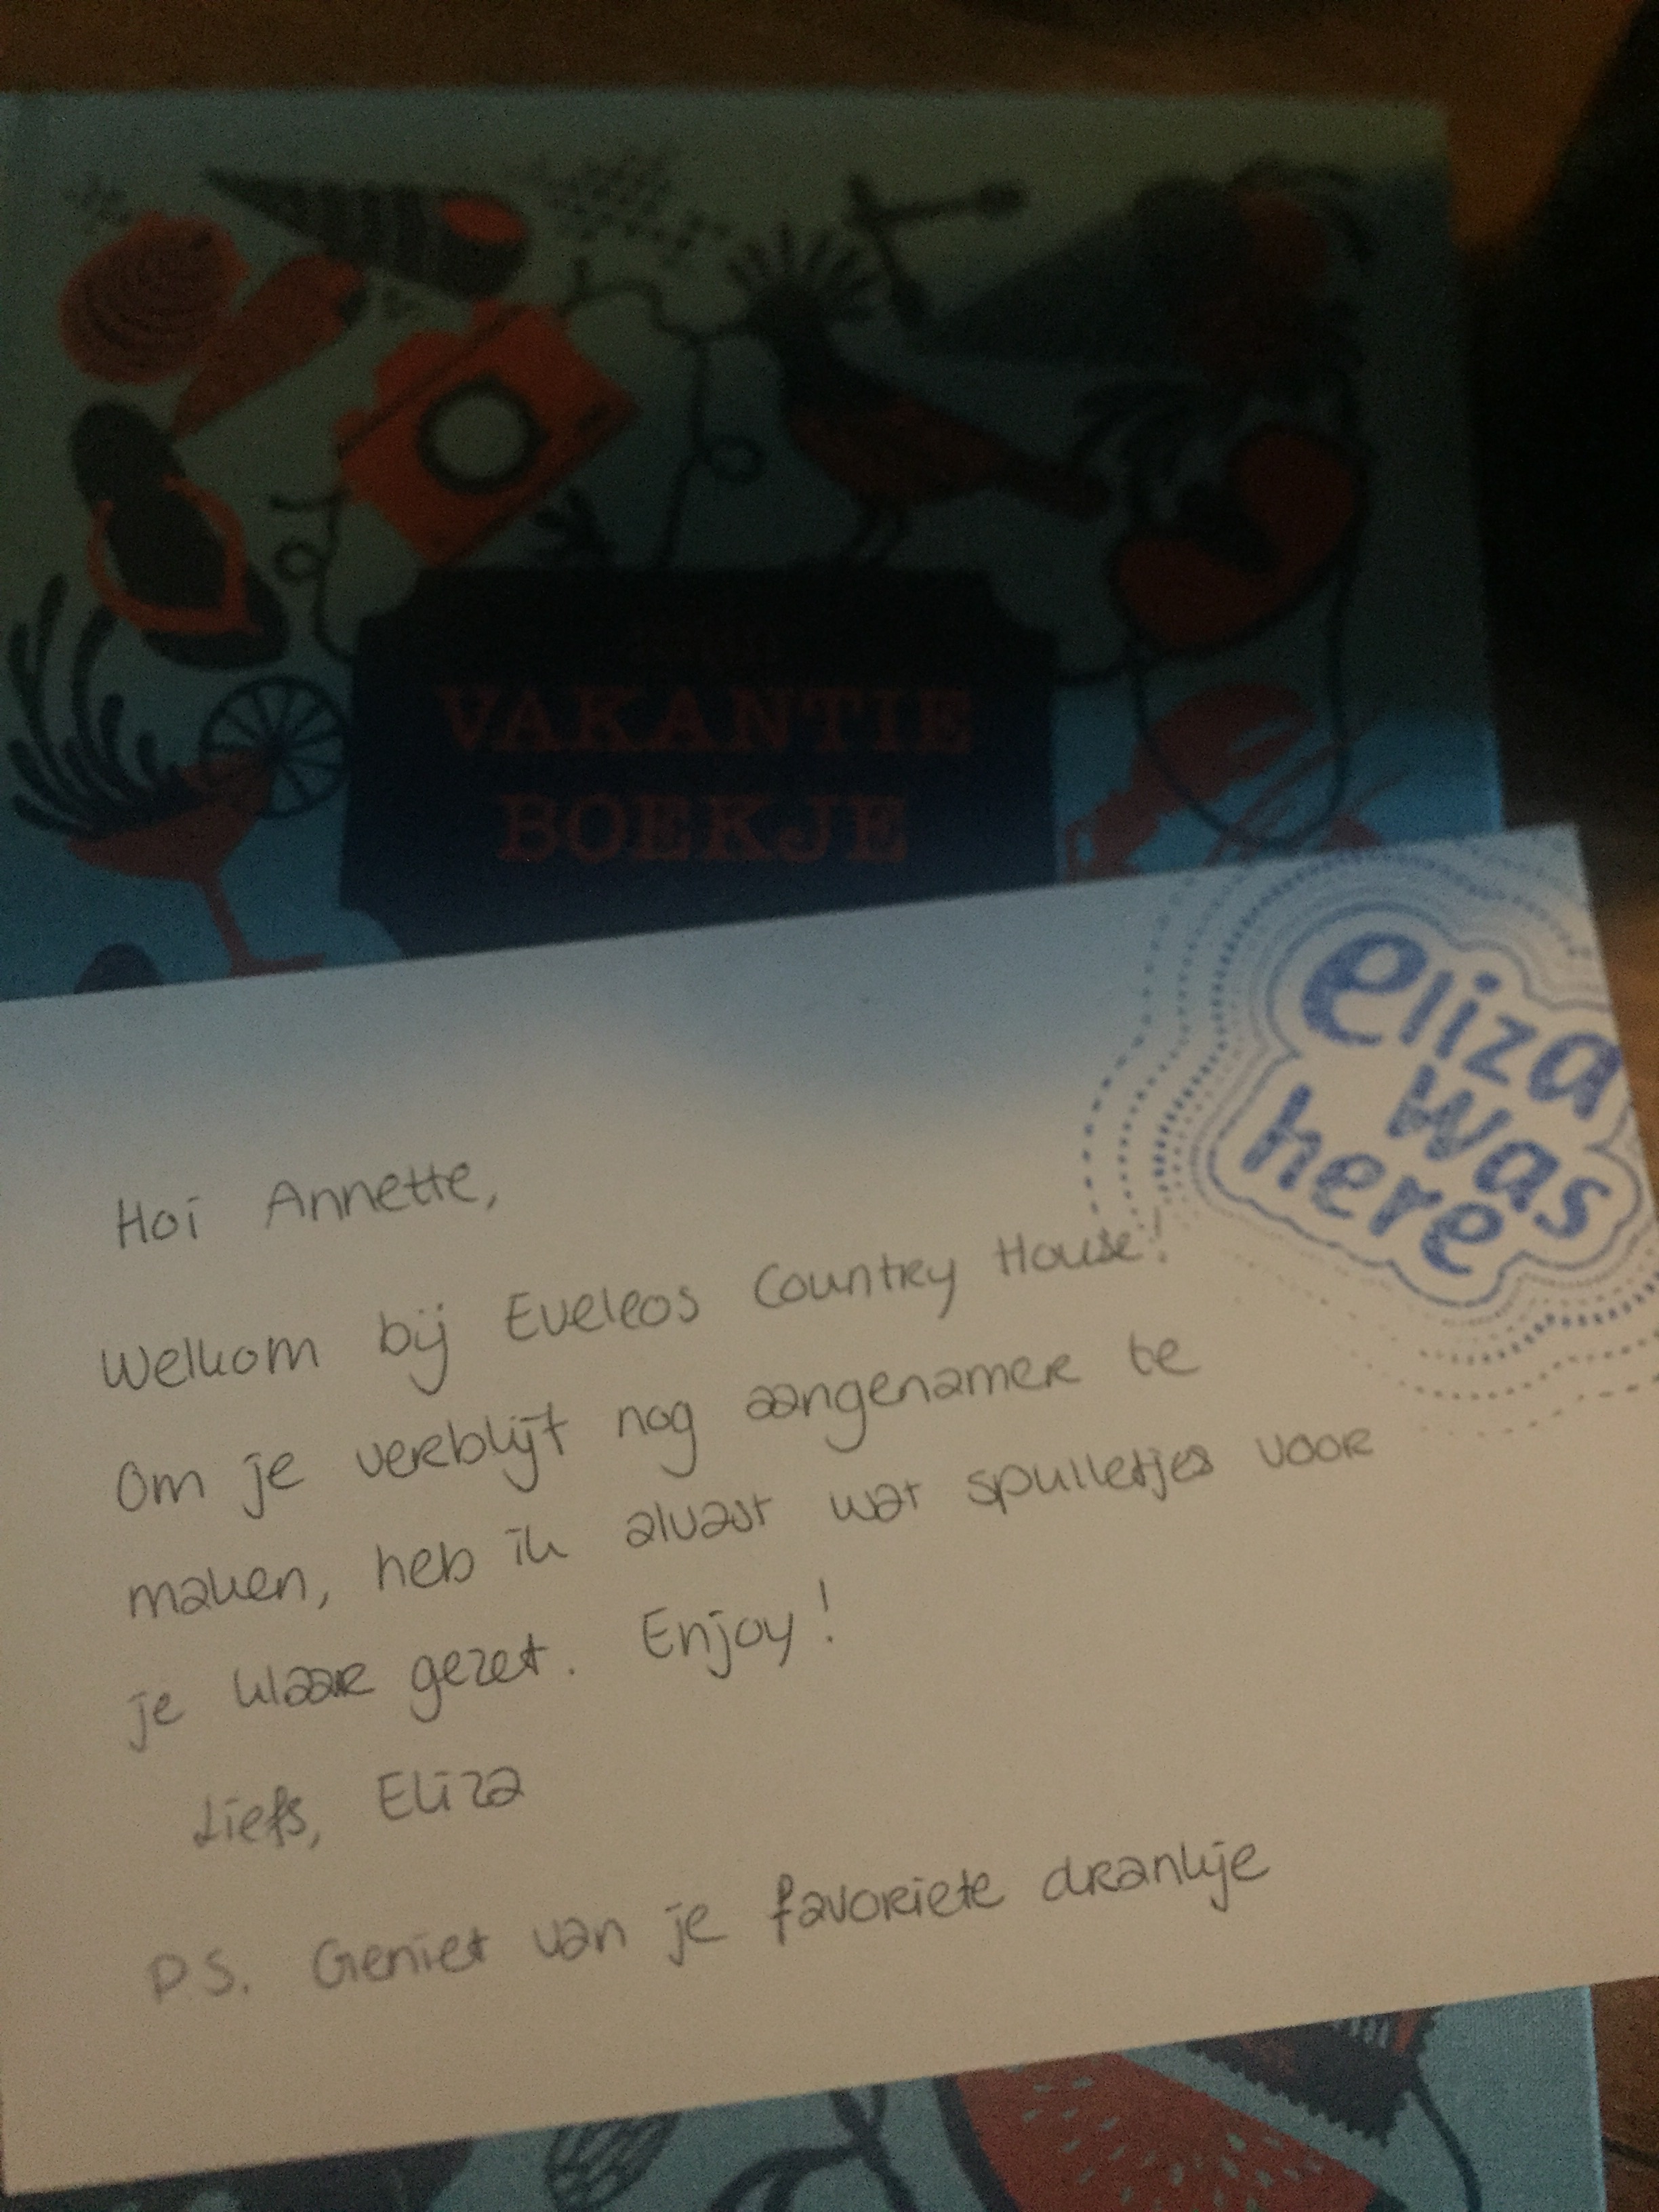 VAKANTIE
BOEKJE
eliza
was
here
Hoi Annette,
Welkom bij Eveleos Country House!
Om je verblijf nog aangenamer te
maken, heb ik alvast wat spulletjes voor
je klaar gezet. Enjoy!
Liefs, Eliza
P.S. Geniet van je favoriete drankje